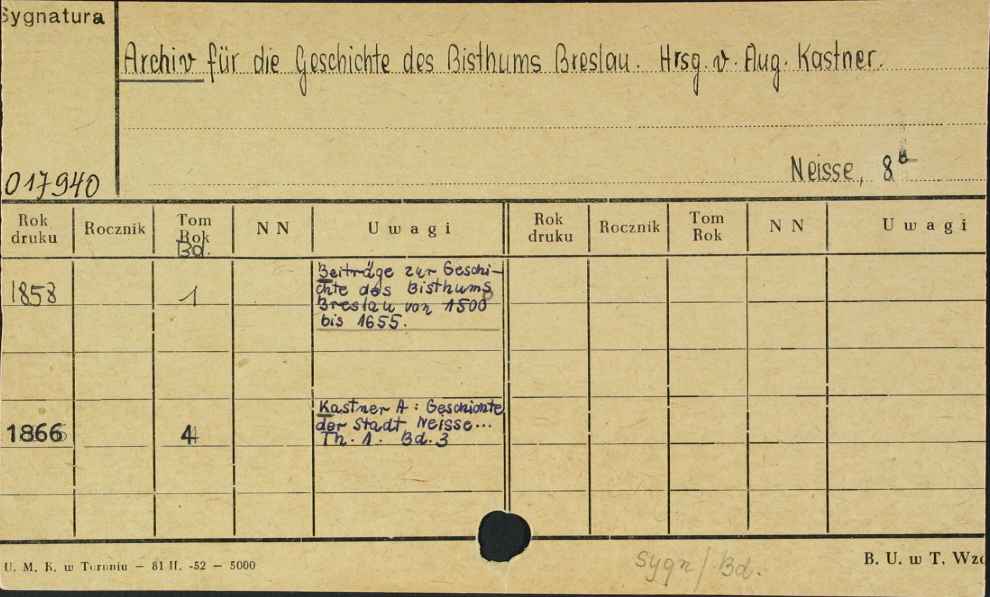 Sygnatura
Archiv für die Geschichte des Bisthums Breslau. Hrsg. v. Aug. Kastner.
Neisse, 8
017940
Rok druku Rocznik Tom Rok Bd. N N Uwagi Rok druku Rocznik Tom Rok N N Uwagi
1858 1 Beiträge zur Geschi-
chte des Bisthums
Breslau von 1500
bis 1655.
1866 4 Kastner A: Geschichte
der Stadt Neisse...
Th. 1. Bd. 3
U. M. K. w Toruniu – 81 II. -52 – 5000
sygn/Bd.
B. U. w T. Wzó